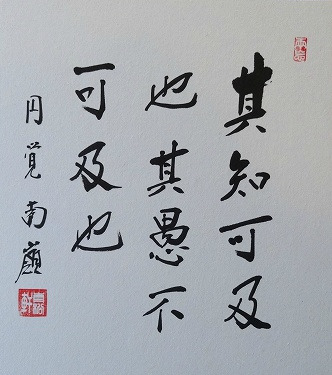 其知可及
也其愚不
可及也
円覚南嶺